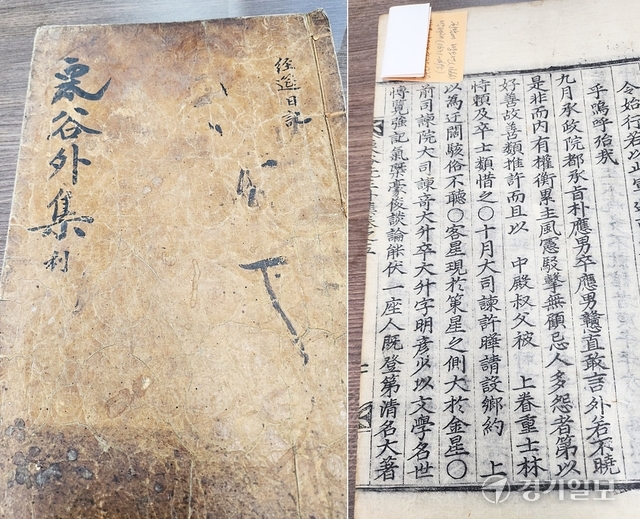 經筵日記
栗谷外集
利
下
令始行若以此
乎嗚呼殆哉
九月承政院都承旨朴應男卒應男戇直敢言外若不曉
是非而內有權衡累主風憲駁擊無顧忌人多怨者第以
好善故善類推許而且以 中殿叔父被 上眷重士林
恃賴及卒士類惜之〇十月大司諫許曄請設鄕約 上
以爲迂闊駭俗不聽〇客星現於策星之側大於金星〇
前司諫院大司諫奇大升卒大升字明彥少以文學名世
博覽強記氣槩豪俊談論能伏一座人旣登第淸名大著
경기일보